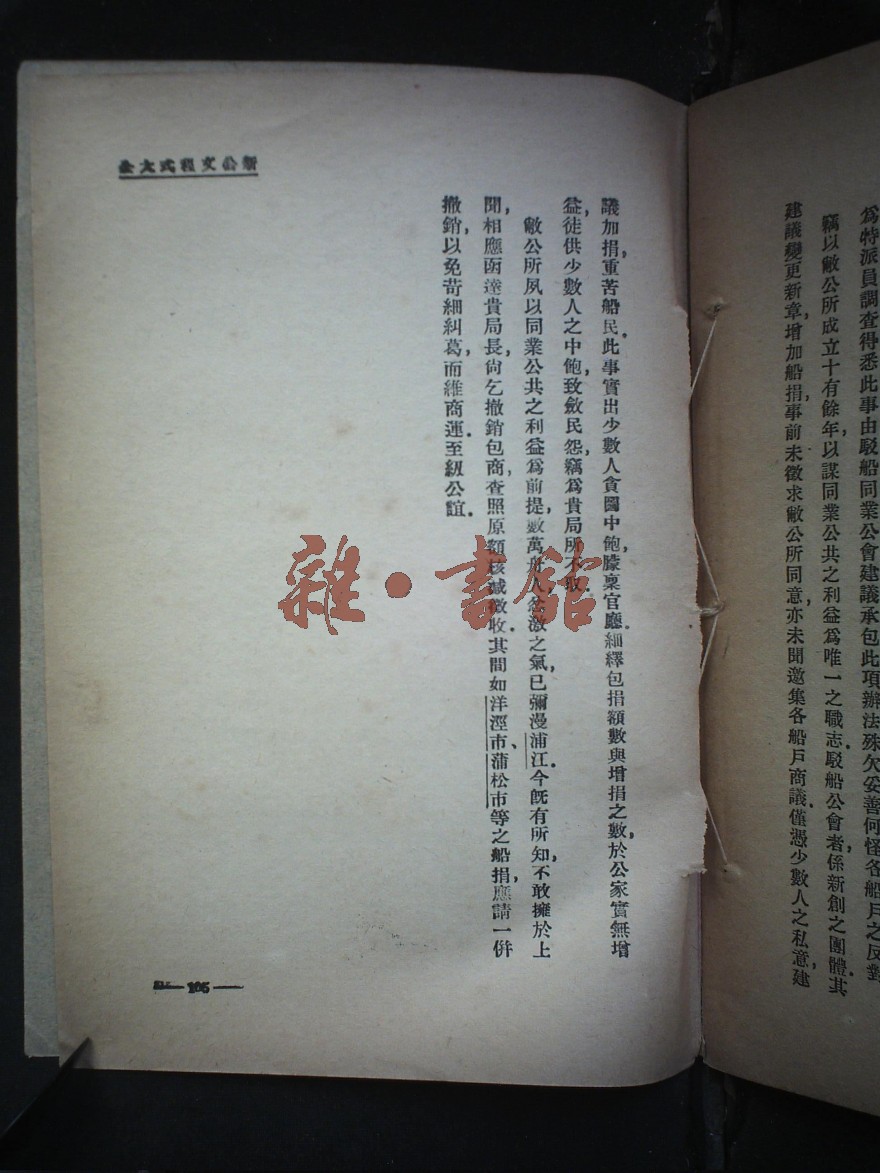 爲特派員調查得悉此事由駁船同業公會建議承包此項辦法殊欠妥善何怪各船戶之反對
竊以敝公所成立十有餘年,以謀同業公共之利益爲唯一之職志.駁船公會者,係新創之團體.其
建議變更新章,增加船捐,事前未徵求敝公所同意,亦未聞邀集各船戶商議.僅憑少數人之私意,建
新公文程式大全
議加捐,重苦船民.此事實出少數人貪圖中飽,朦稟官廳.細繹包捐額數與增捐之數,於公家實無增
益,徒供少數人之中飽,致斂民怨,竊爲貴局所不取.
敝公所夙以同業公共之利益爲前提,數萬舟人忿激之氣,已彌漫浦江.今既有所知,不敢擁於上
聞,相應函達貴局長,尙乞撤銷包商,查照原額核減徵收.其間如洋涇市、蒲松市等之船捐,應請一併
撤銷,以免苛細糾葛,而維商運.至紉公誼.
雜·書館